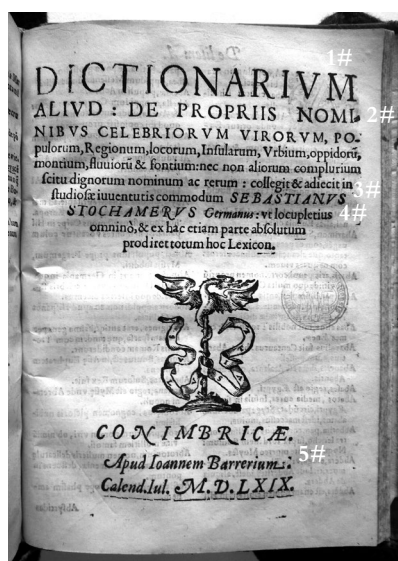 1#
DICTIONARIVM
ALIVD : DE PROPRIIS NOMI- 2#
NIBVS CELEBRIORVM VIRORVM, PO-
pulorum, Regionum, locorum, Insularum, Vrbium, oppidorũ,
montium, fluuiorũ & fontium: nec non aliorum complurium
scitu dignorum nominum ac rerum : collegit & adiecit in 3#
studiosæ iuuentutis commodum SEBASTIANVS
STOCHAMERVS Germanus: vt locupletius 4#
omninò, & ex hac etiam parte absolutum
prodiret totum hoc Lexicon.
CONIMBRICÆ.
Apud Ioannem Barrerium. 5#
Calend. Iul. M. D. LXIX.